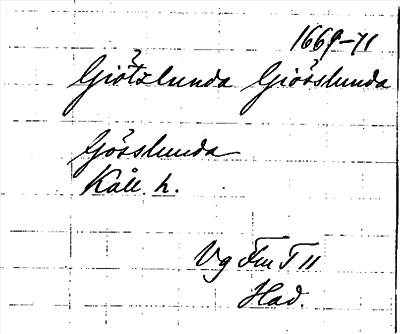 1669-71
Giötzlunda Giösslunda
Gösslunda
Kåll. h.
Vg Fm T 11
Had.